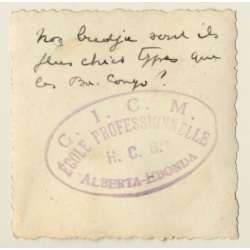 Nos Budja sont ils
plus chics types que
les Ba. Congo?
C. I. C. M.
ÉCOLE PROFESSIONNELLE
H. C. B.
ALBERTA-EBONDA